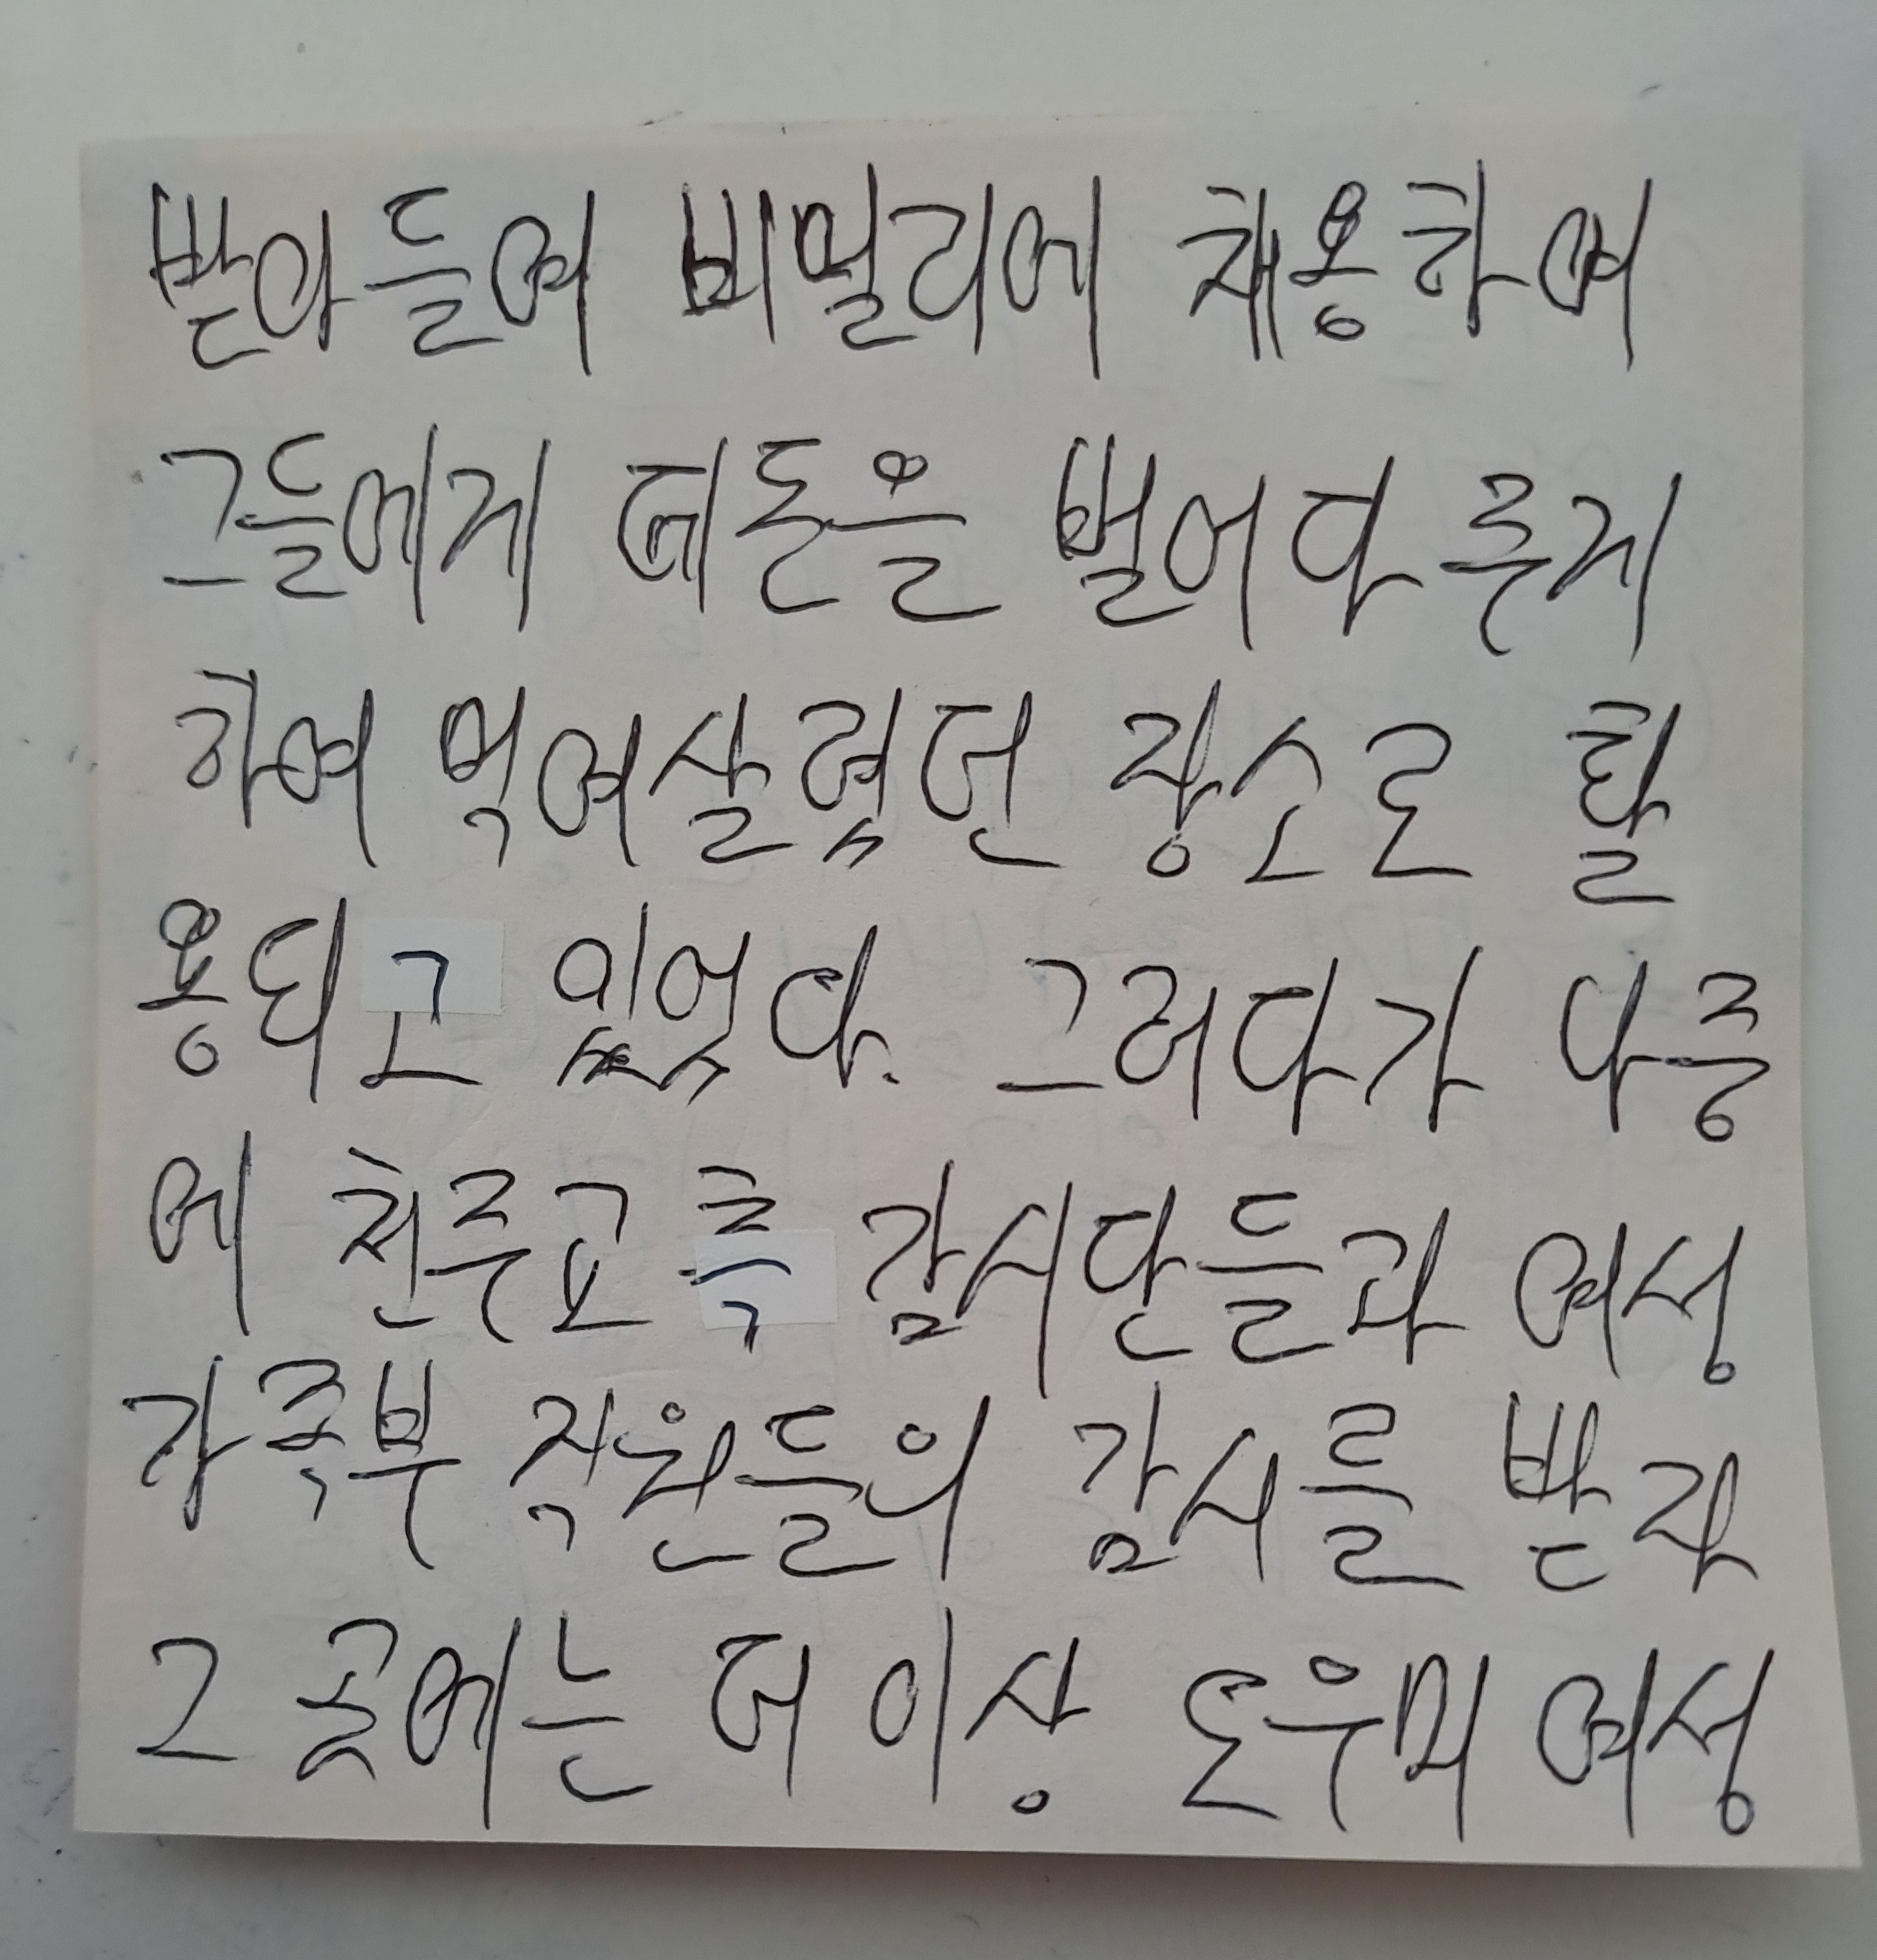 받아들여 비밀리에 채용하여
그들에게 떼돈을 벌어다 주게
하여 먹여살렸던 장소로 활
용되고 있었다. 그러다가 나중
에 천주교 측 감시단들과 여성
가족부 직원들의 감시를 받자
그 곳에는 더 이상 도우미 여성